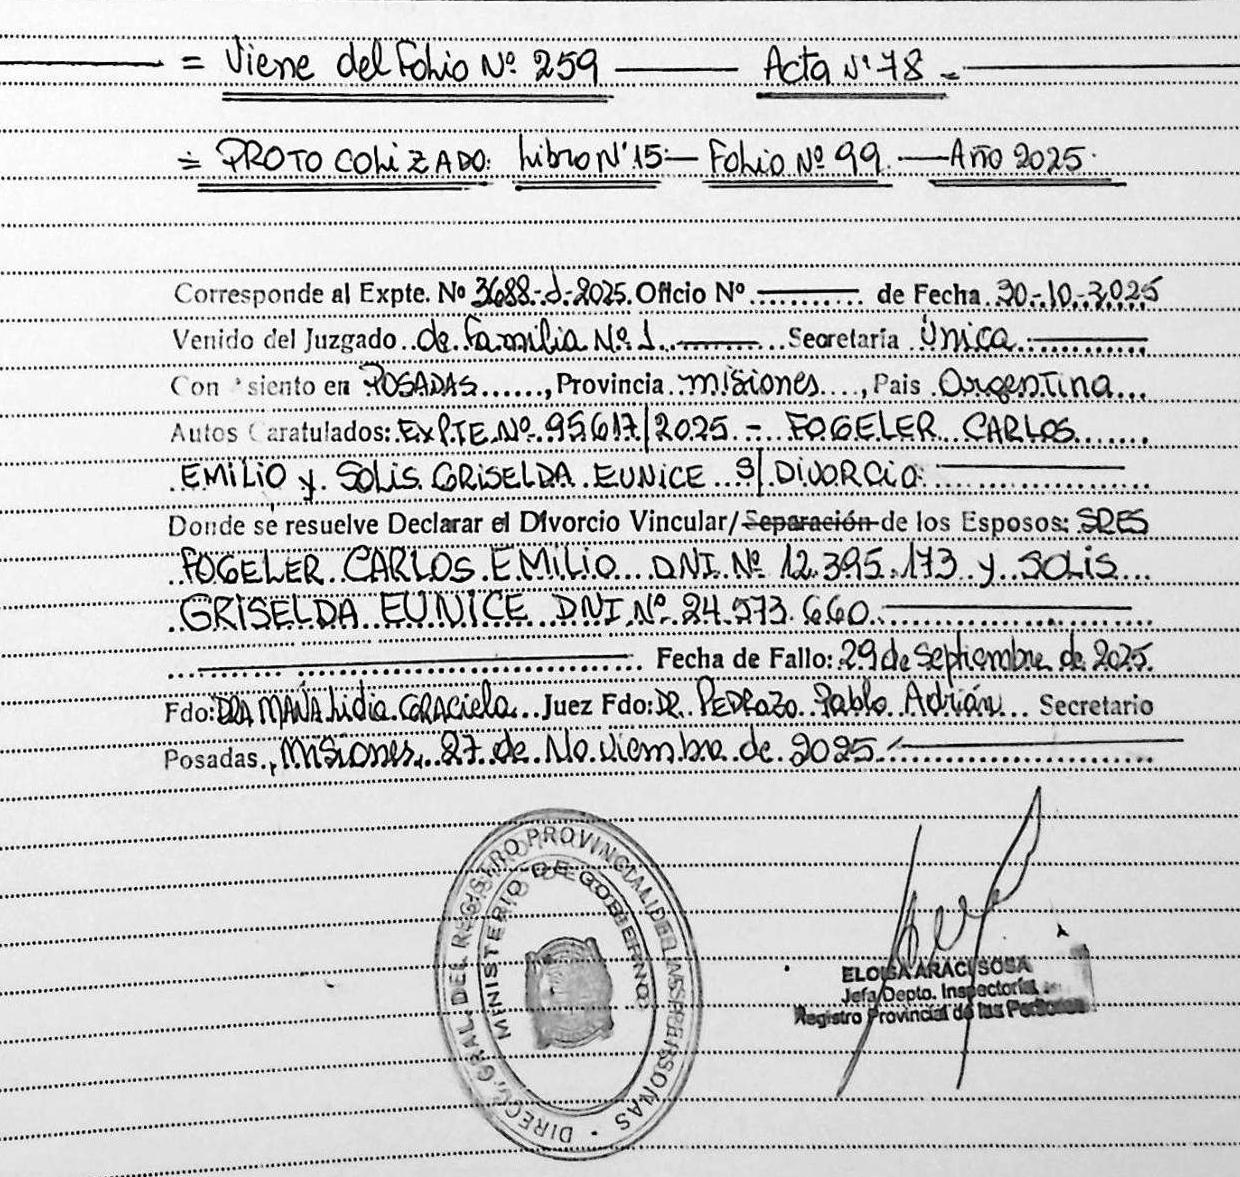 = Viene del Folio Nº 259 — Acta Nº 78 -
= PROTOCOLIZADO: Libro Nº 15 — Folio Nº 99. — Año 2025.
Corresponde al Expte. Nº 3688-J-2025. Oficio Nº .......... de Fecha 30-10-2025
Venido del Juzgado de Familia Nº 1. Secretaría Única.
Con siento en POSADAS ......, Provincia Misiones ...., Pais Argentina...
Autos Caratulados: EXPTE. Nº 95617/2025. - FOGELER CARLOS
EMILIO y SOLIS GRISELDA EUNICE S/ DIVORCIO.
Donde se resuelve Declarar el Divorcio Vincular/Separación de los Esposos: SRES
FOGELER CARLOS EMILIO DNI. Nº 12.395.173 y SOLIS
GRISELDA EUNICE DNI Nº 24.573.660.
Fecha de Fallo: 29 de Septiembre de 2025.
Fdo: DRA MAÑA Lidia GRACiela... Juez Fdo: DR. PEDROZO Pablo Adrián... Secretario
Posadas, Misiones, 27 de Noviembre de 2025.
DIRECC. GRAL. DEL REGISTRO PROVINCIAL DE LAS PERSONAS
MINISTERIO DE GOBIERNO
ELOISA ARACI SOSA
Jefa Depto. Inspectoría
Registro Provincial de las Personas